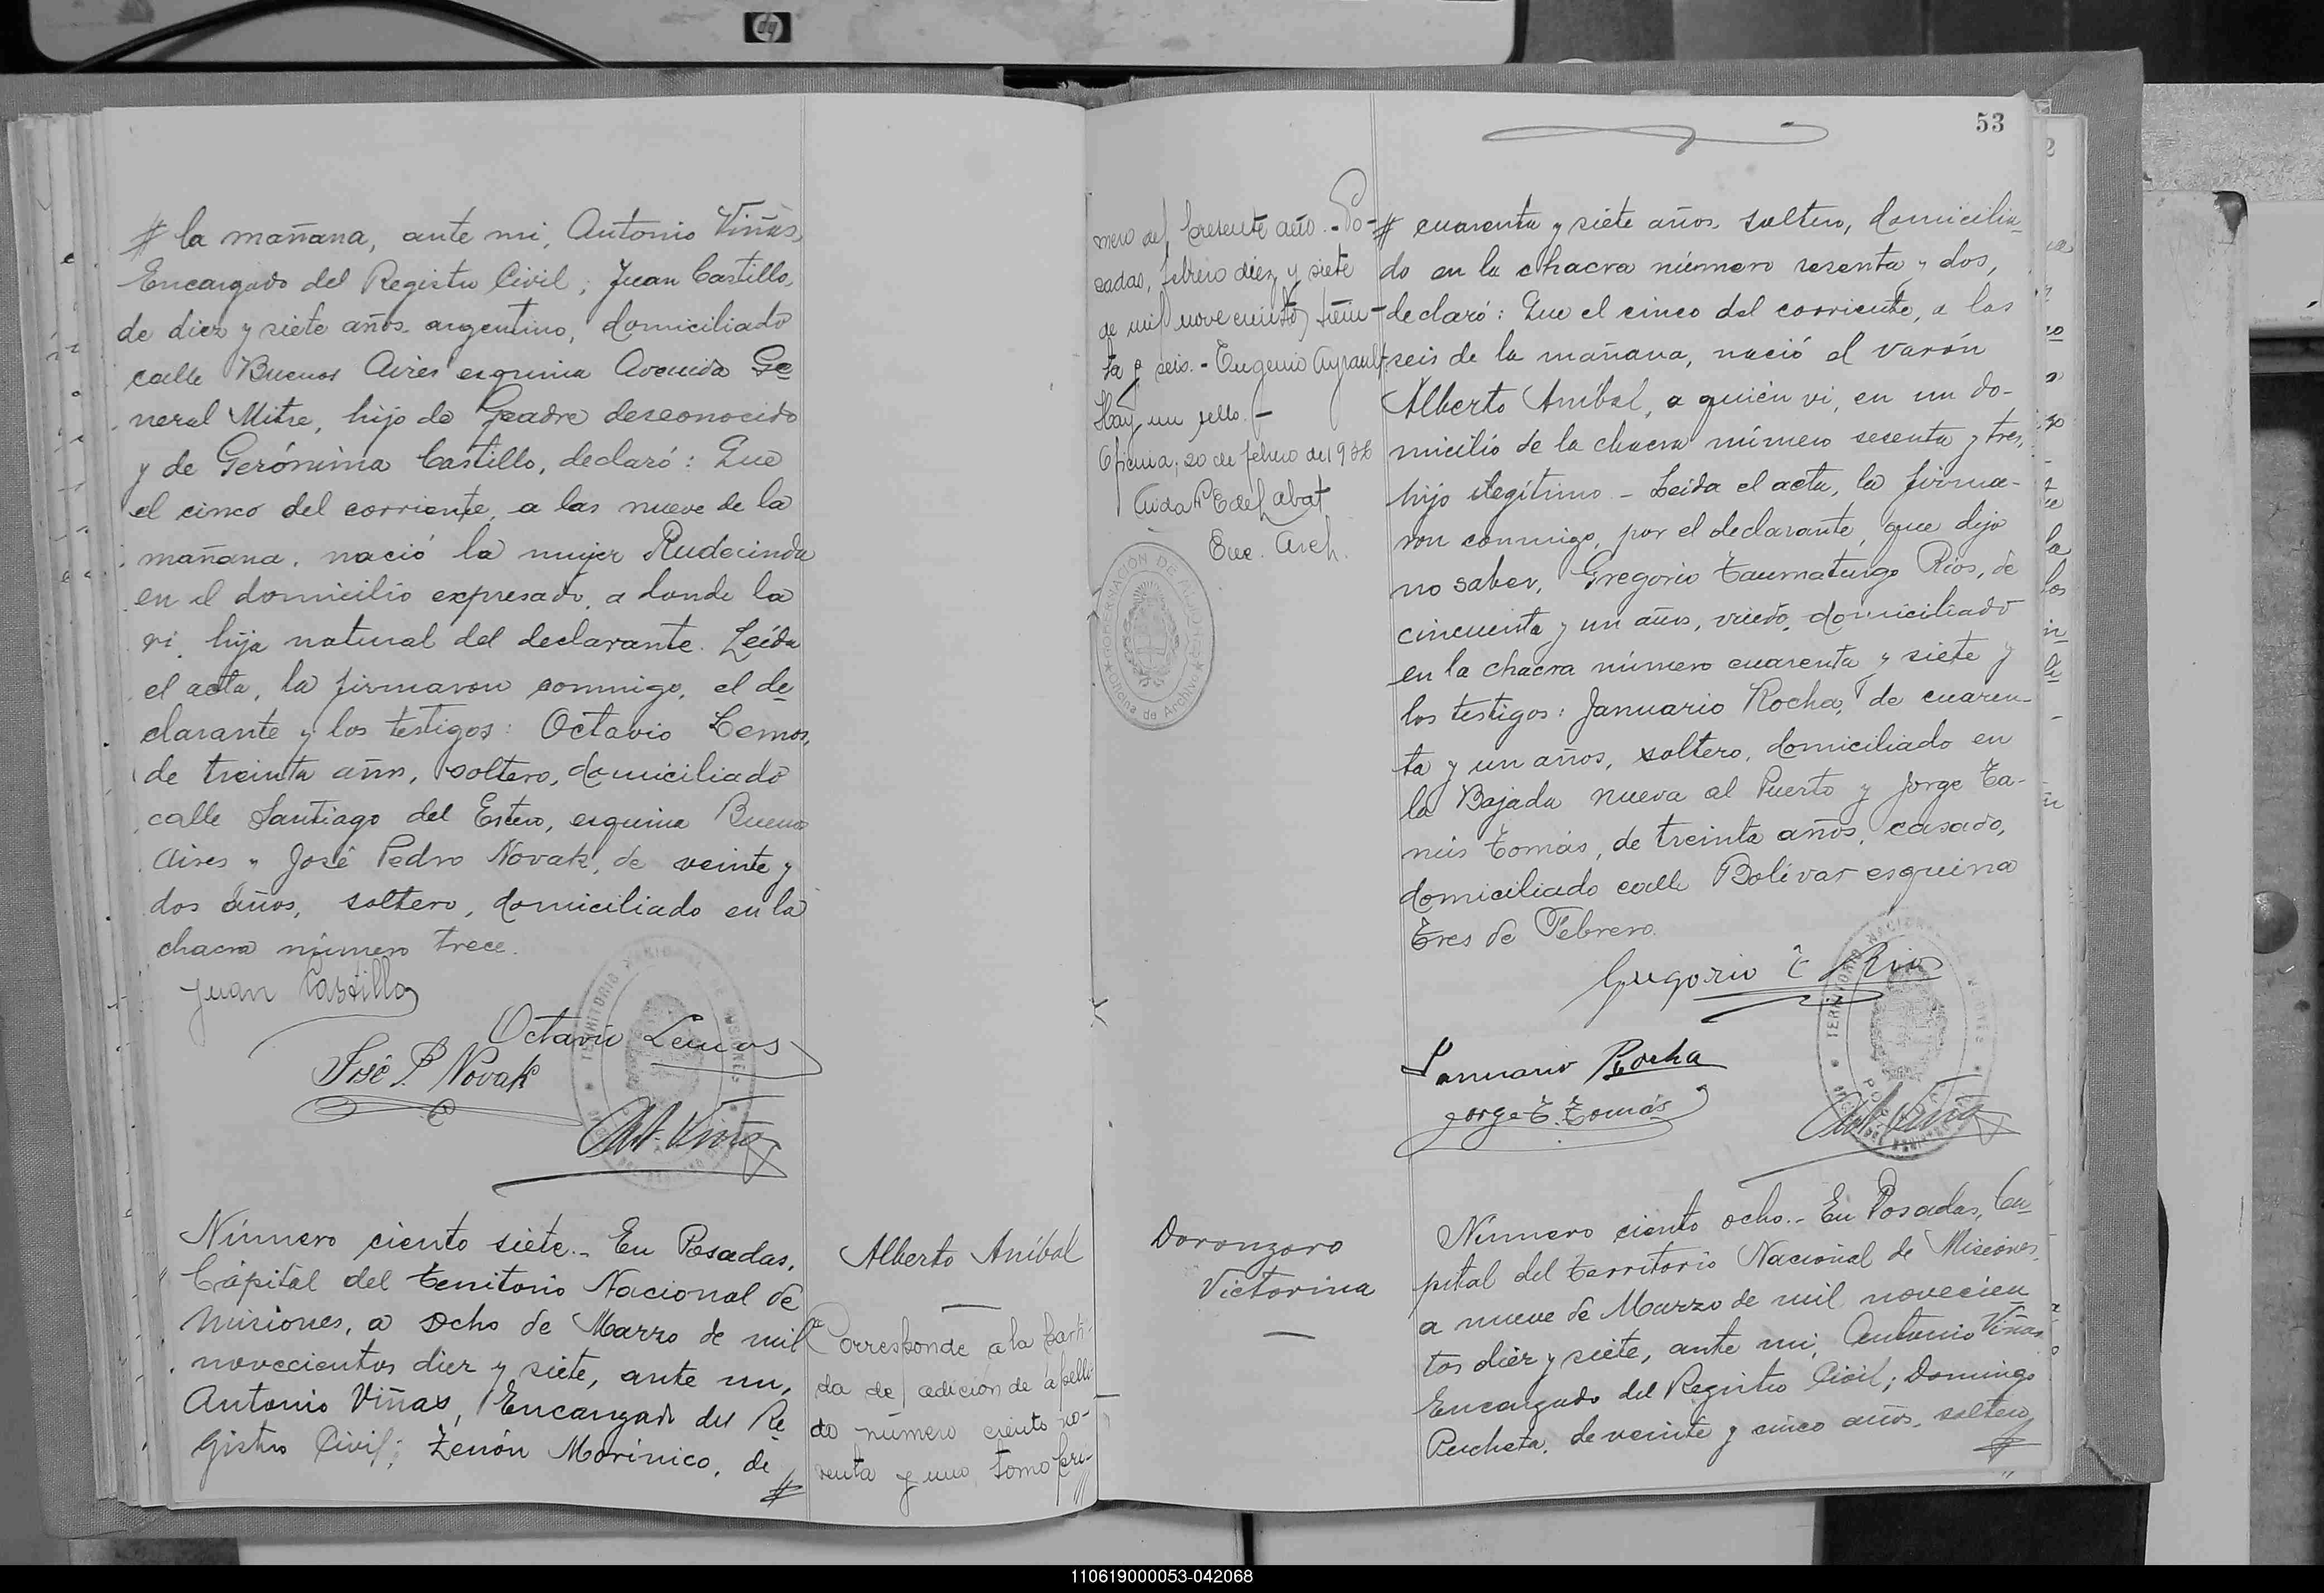 hp
# la mañana, ante mi, Antonio Viñas,
Encargado del Registro Civil; Juan Castillo,
de diez y siete años, argentino, domiciliado
calle Buenos Aires esquina Avenida Ge
neral Mitre, hijo de Padre desconocido
y de Gerónima Castillo, declaró: Que
el cinco del corriente, a las nueve de la
mañana, nació la mujer Rudecinda
en el domicilio expresado, a donde la
vi, hija natural del declarante. Leída
el acta, la firmaron conmigo, el de
clarante y los testigos: Octavio Lemos,
de treinta años, soltero, domiciliado
calle Santiago del Estero, esquina Buenos
Aires y José Pedro Novak, de veinte y
dos años, soltero, domiciliado en la
chacra número trece.
Juan Castillo
Octavio Lemos
José P. Novak
Ant. Viñas
Número ciento siete.- En Posadas,
Capital del Territorio Nacional de
Misiones, a ocho de Marzo de mil
novecientos diez y siete, ante mi,
Antonio Viñas, Encargado del Re
gistro Civil; Zenón Morínico, de
#
Alberto Aníbal
Corresponde a la parti-
da de adición de apelli
do número ciento no-
venta y uno, tomo pri-
//
53
mero del presente año.- Po-
sadas, febrero diez y siete
de mil novecientos trein-
ta y seis.- Eugenio
Hay un sello.-
Oficina, 20 de febrero de 1936
Enc. Arch.
GOBERNACIÓN DE MISIONES
Oficina de Archivo
# cuarenta y siete años, soltero, domicilia-
do en la chacra número sesenta y dos,
declaró: Que el cinco del corriente, a las
seis de la mañana, nació el varón
Alberto Aníbal, a quien vi, en un do-
micilio de la chacra número sesenta y tres,
hijo ilegítimo.- Leída el acta, la firma-
ron conmigo, por el declarante, que dijo
no saber, Gregorio Taumaturgo Rios, de
cincuenta y un años, viudo, domiciliado
en la chacra número cuarenta y siete y
los testigos: Januario Rocha, de cuaren-
ta y un años, soltero, domiciliado en
la Bajada nueva al Puerto y Jorge Ta-
nus Tomás, de treinta años, casado,
domiciliado calle Bolívar esquina
Tres de Febrero.
Gregorio T Rios
Januario Rocha
Jorge T. Tomás
Ant. Viñas
Doronzoro
Victorina
Número ciento ocho.- En Posadas, Ca
pital del Territorio Nacional de Misiones,
a nueve de Marzo de mil novecien
tos diez y siete, ante mi, Antonio Viñas
Encargado del Registro Civil; Domingo
Pucheta, de veinte y cinco años, soltero,
#
110619000053-042068